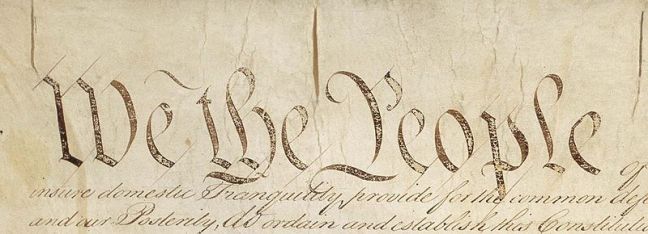 We the People
of
insure domestic Tranquility, provide for the common def
and our Posterity, do ordain and establish this Constituti